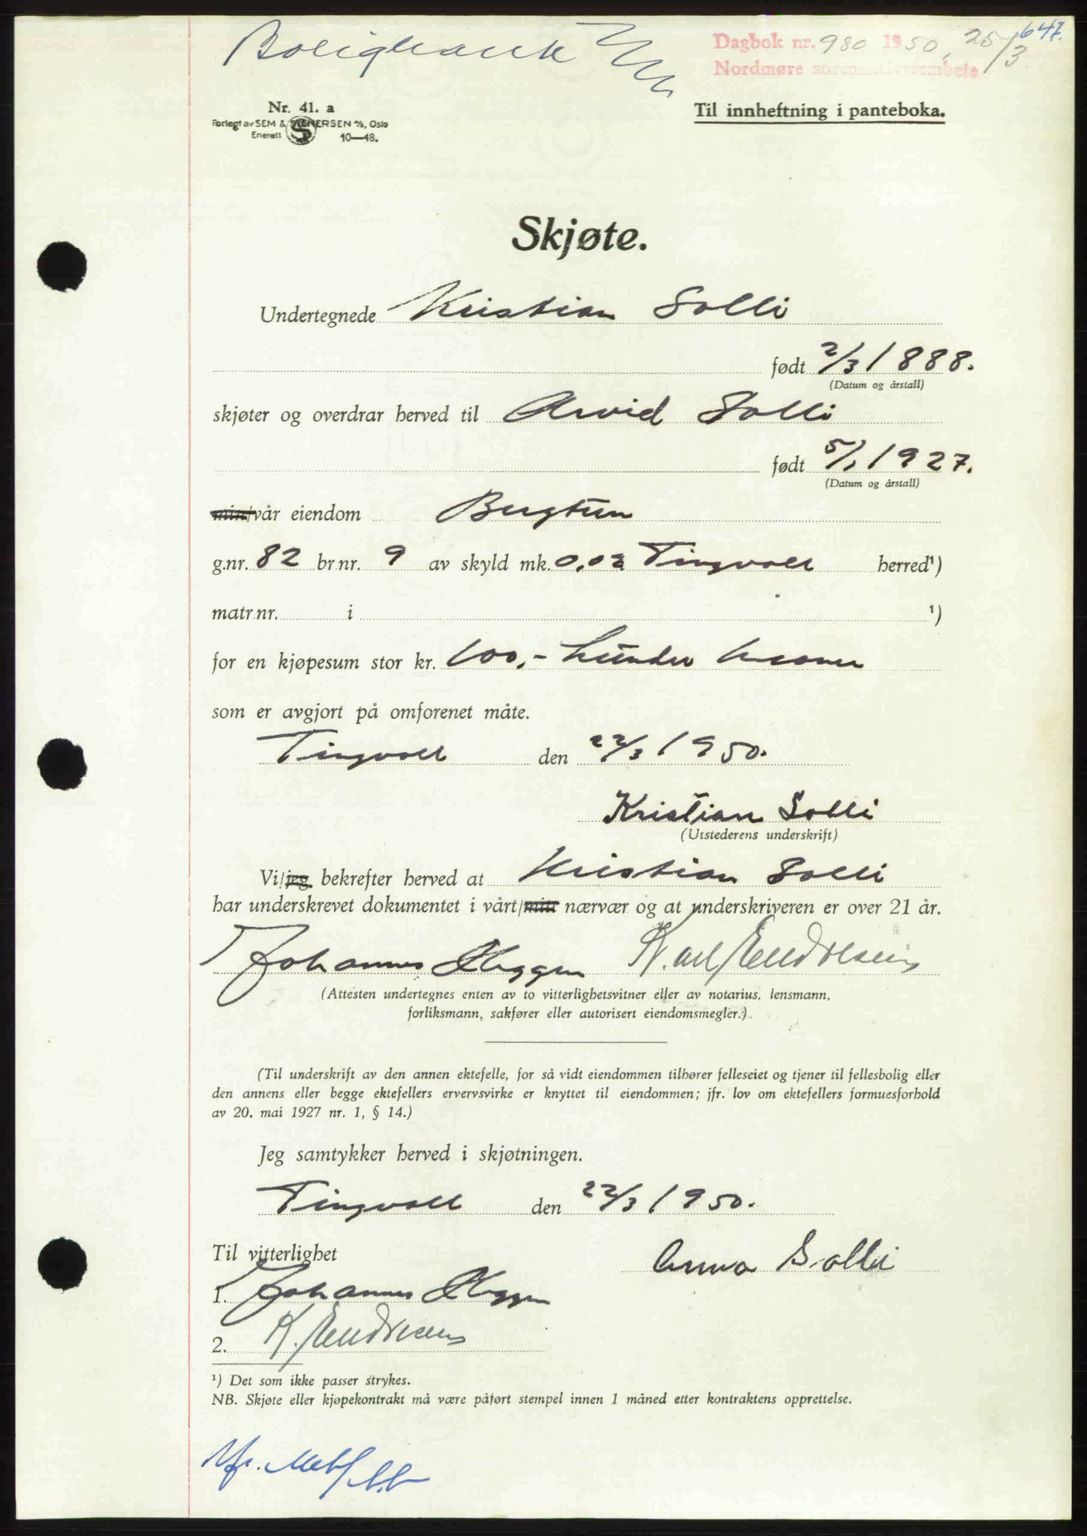 647.
Boligbank
Dagbok nr. 980 1950, 25/3
Nordmøre sorenskriverembete
Nr. 41. a
Forlagt av SEM & STENERSEN A/S, Oslo
Enerett 10—48.
Til innheftning i panteboka.
Skjøte.
Undertegnede Kristian Solli
født 2/3 1888.
(Datum og årstall)
skjøter og overdrar herved til Arvid Solli
født 5/1 1927.
(Datum og årstall)
min/vår eiendom Bergtun
g.nr. 82 br.nr. 9 av skyld mk. 0,02 Tingvoll herred¹)
matr.nr. i ¹)
for en kjøpesum stor kr. 100,- hundre kroner
som er avgjort på omforenet måte.
Tingvoll den 22/3 1950.
Kristian Solli
(Utstederens underskrift)
Vi/jeg bekrefter herved at Kristian Solli
har underskrevet dokumentet i vårt/mitt nærvær og at underskriveren er over 21 år.
Johannes Karl Endresen
(Attesten undertegnes enten av to vitterlighetsvitner eller av notarius, lensmann,
forliksmann, sakfører eller autorisert eiendomsmegler.)
(Til underskrift av den annen ektefelle, for så vidt eiendommen tilhører felleseiet og tjener til fellesbolig eller
den annens eller begge ektefellers ervervsvirke er knyttet til eiendommen; jfr. lov om ektefellers formuesforhold
av 20. mai 1927 nr. 1, § 14.)
Jeg samtykker herved i skjøtningen.
Tingvoll den 22/3 1950.
Til vitterlighet
Anna Solli
1. Johannes
2. K. Endresen
¹) Det som ikke passer strykes.
NB. Skjøte eller kjøpekontrakt må være påført stempel innen 1 måned etter kontraktens opprettelse.